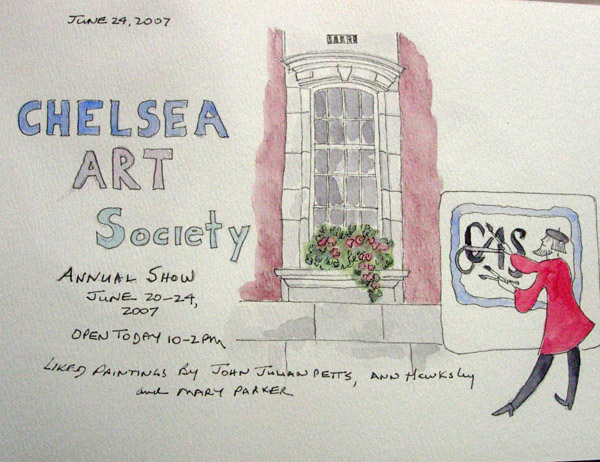 JUNE 24, 2007
CHELSEA
ART
Society
ANNUAL SHOW
JUNE 20-24,
2007
OPEN TODAY 10-2PM
LIKED PAINTINGS BY JOHN JULIAN PETTS, ANN Hewksley
and MARY PARKER
CAS